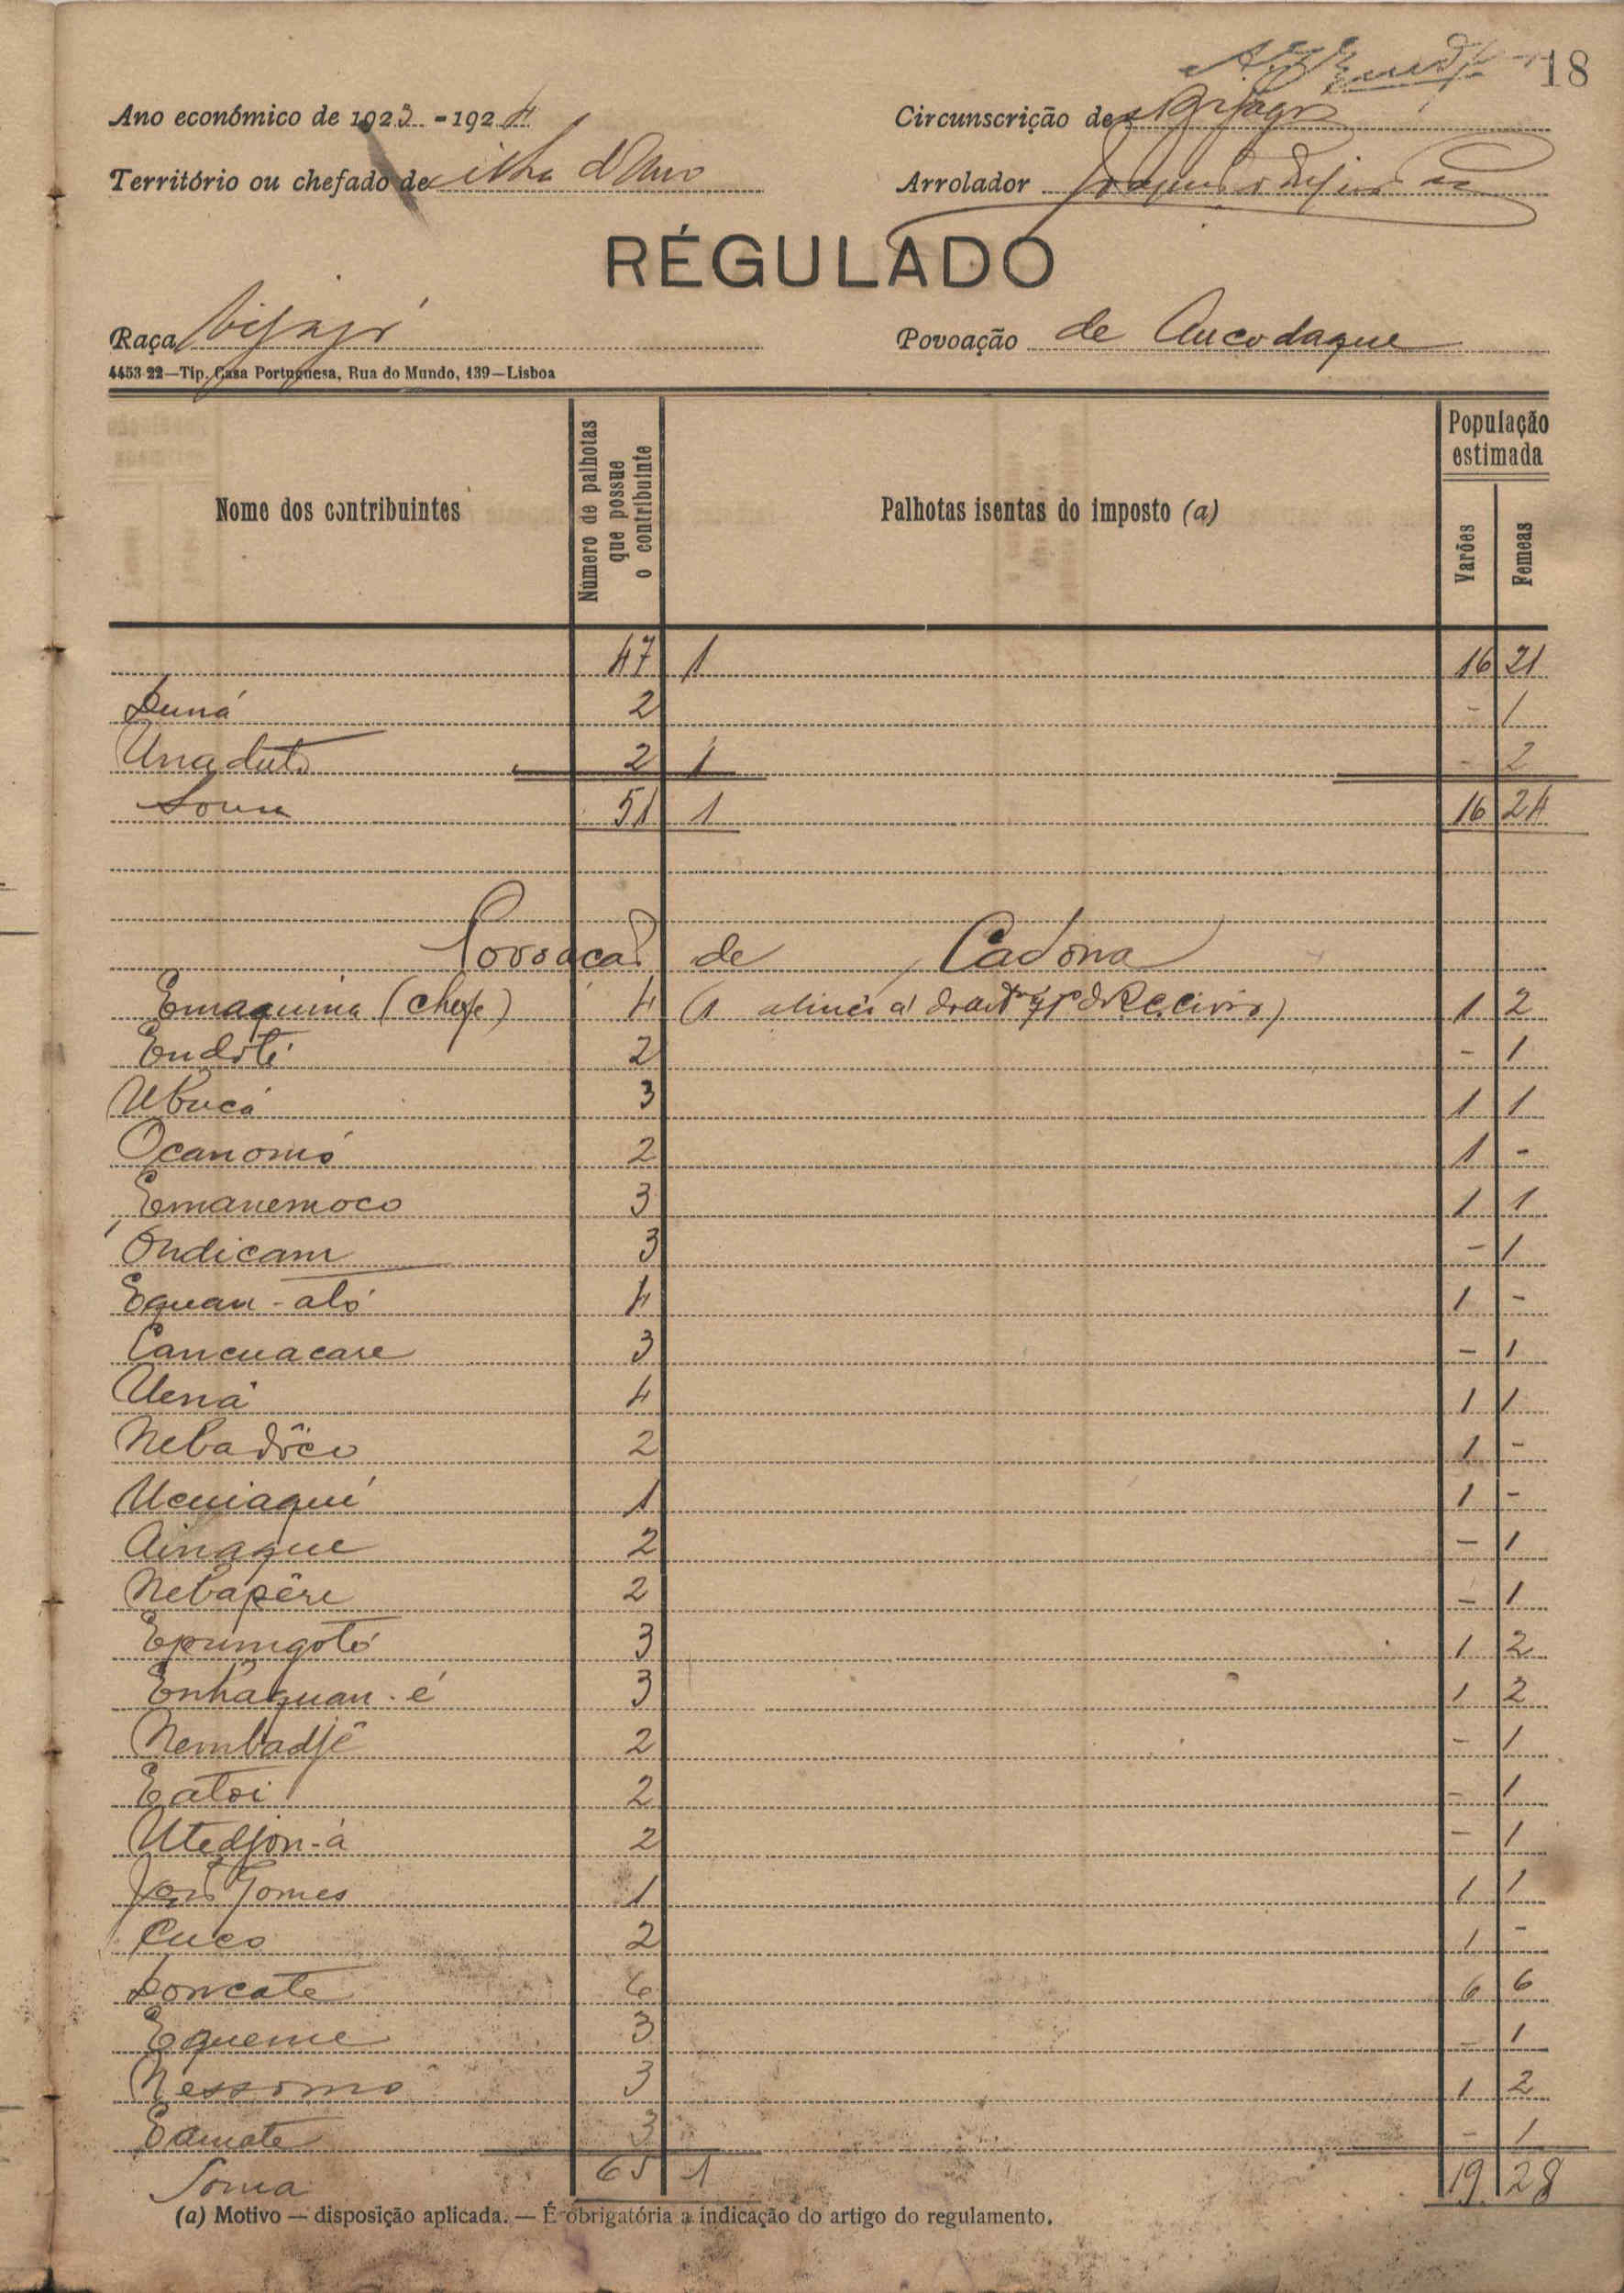 18
Ano económico de 1923-1924 Circunscrição de Bijagoz
Território ou chefado de ilha d'Uno Arrolador
RÉGULADO
Raça bijagó Povoação de Ancodaque
4453-22—Tip. Casa Portuguesa, Rua do Mundo, 139—Lisboa
Nome dos contribuintes Número de palhotas que possue o contribuinte Palhotas isentas do imposto (a) População estimada Varões Femeas
47 1 16 21
Duná 2 - 1
Unaduto 2 1 - 2
Soma 51 1 16 24
Povoação de Cadona
Emaquina (chefe) 4 (1 alinea a) do artº 7º do Reg. civis) 1 2
Endoté 2 - 1
Ubucá 3 1 1
Ocanomó 2 1 -
Emanemoco 3 1 1
Ondicam 3 - 1
Equan-aló 4 1 -
Cancuacare 3 - 1
Uená 4 1 1
Nebadôco 2 1 -
Ucuiaqui 1 1 -
Ainaque 2 - 1
Nebapêre 2 - 1
Epumgotó 3 1 2
Enhaquan-é 3 1 2
Nembadjê 2 - 1
Eatoi 2 - 1
Utedjon-á 2 - 1
João Gomes 1 1 1
Cuco 2 1 -
Doncate 6 6 6
Equeme 3 - 1
Nessomo 3 1 2
Edamate 3 - 1
Soma 65 1 19 28
(a) Motivo — disposição aplicada. — É obrigatória a indicação do artigo do regulamento.